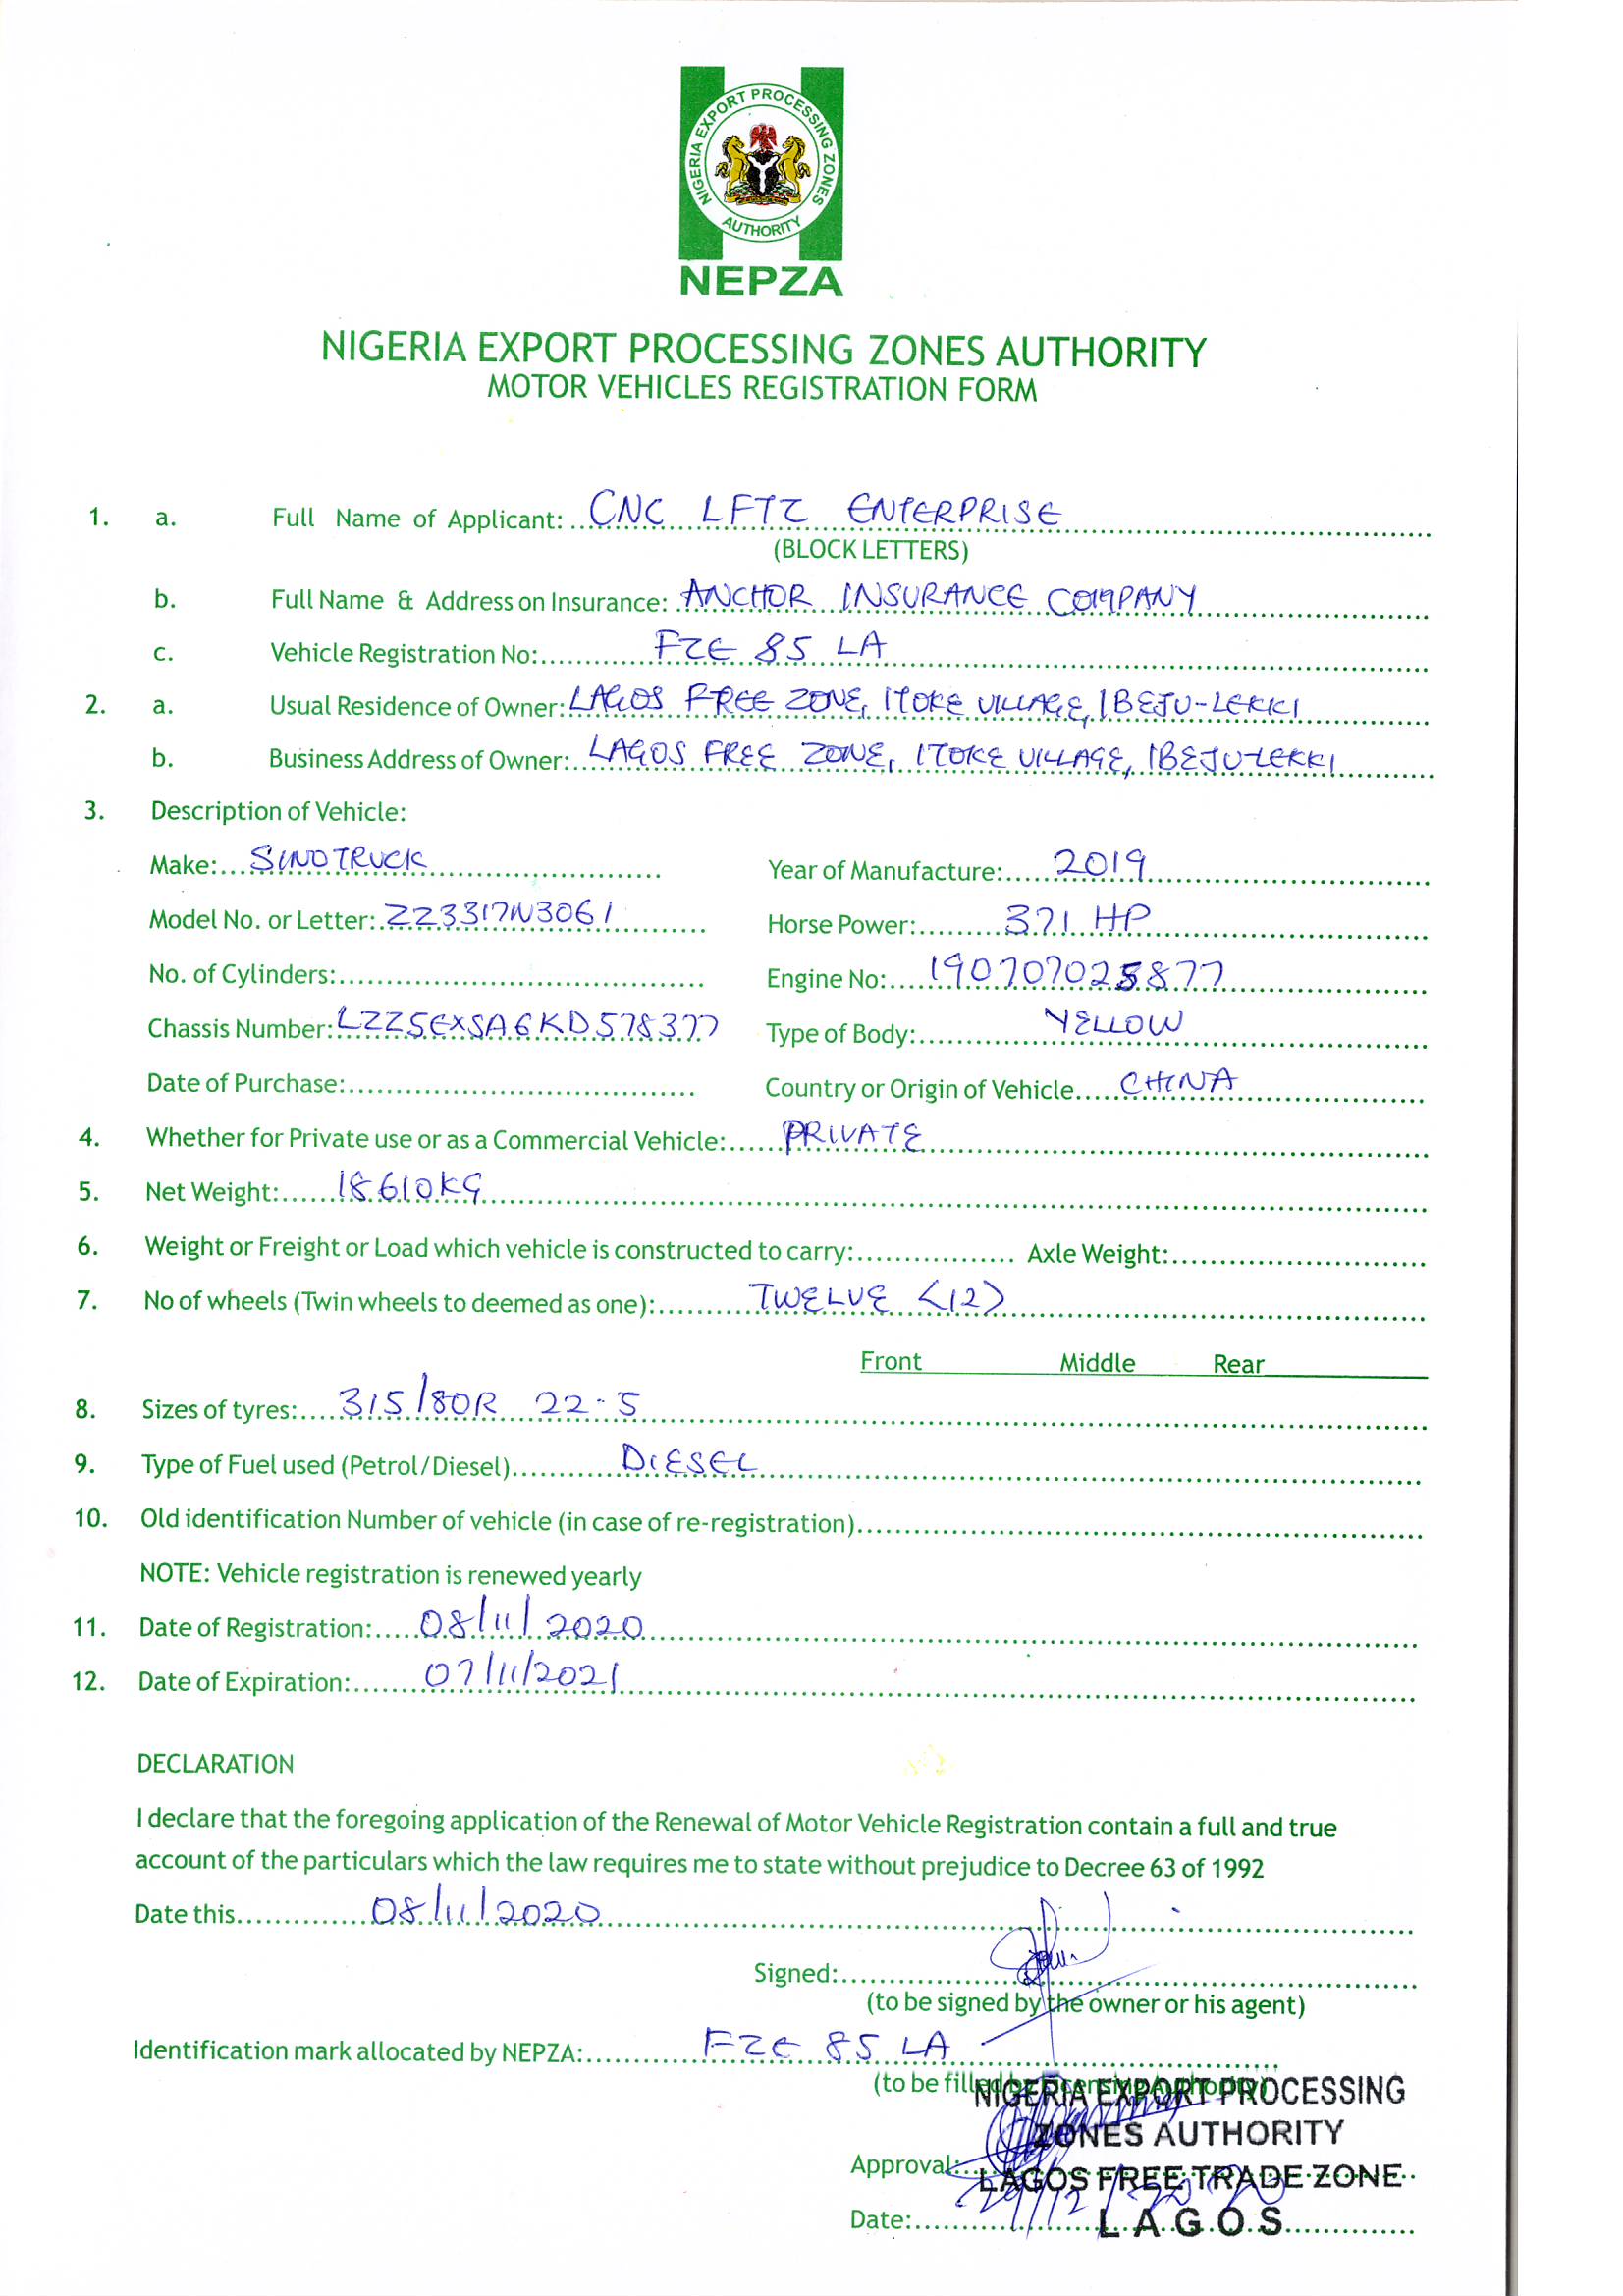 NIGERIA EXPORT PROCESSING ZONES
AUTHORITY
NEPZA
NIGERIA EXPORT PROCESSING ZONES AUTHORITY
MOTOR VEHICLES REGISTRATION FORM
1. a. Full Name of Applicant: CNC LFTZ ENTERPRISE
(BLOCK LETTERS)
b. Full Name & Address on Insurance: ANCHOR INSURANCE COMPANY
c. Vehicle Registration No: FZE 85 LA
2. a. Usual Residence of Owner: LAGOS FREE ZONE, ITOKE VILLAGE, IBEJU-LEKKI
b. Business Address of Owner: LAGOS FREE ZONE, ITOKE VILLAGE, IBEJU-LEKKI
3. Description of Vehicle:
Make: SINOTRUCK Year of Manufacture: 2019
Model No. or Letter: ZZ3317N3061 Horse Power: 371 HP
No. of Cylinders: Engine No: 190707025877
Chassis Number: LZZ5EXSA6KD578377 Type of Body: YELLOW
Date of Purchase: Country or Origin of Vehicle CHINA
4. Whether for Private use or as a Commercial Vehicle: PRIVATE
5. Net Weight: 18610KG
6. Weight or Freight or Load which vehicle is constructed to carry: Axle Weight:
7. No of wheels (Twin wheels to deemed as one): TWELVE <12>
Front Middle Rear
8. Sizes of tyres: 315/80R 22.5
9. Type of Fuel used (Petrol/Diesel) DIESEL
10. Old identification Number of vehicle (in case of re-registration)
NOTE: Vehicle registration is renewed yearly
11. Date of Registration: 08/11/2020
12. Date of Expiration: 07/11/2021
DECLARATION
I declare that the foregoing application of the Renewal of Motor Vehicle Registration contain a full and true
account of the particulars which the law requires me to state without prejudice to Decree 63 of 1992
Date this 08/11/2020
Signed:
(to be signed by the owner or his agent)
Identification mark allocated by NEPZA: FZE 85 LA
(to be filled by Licensing Authority)
NIGERIA EXPORT PROCESSING
ZONES AUTHORITY
Approval:
LAGOS FREE TRADE ZONE
Date:
LAGOS